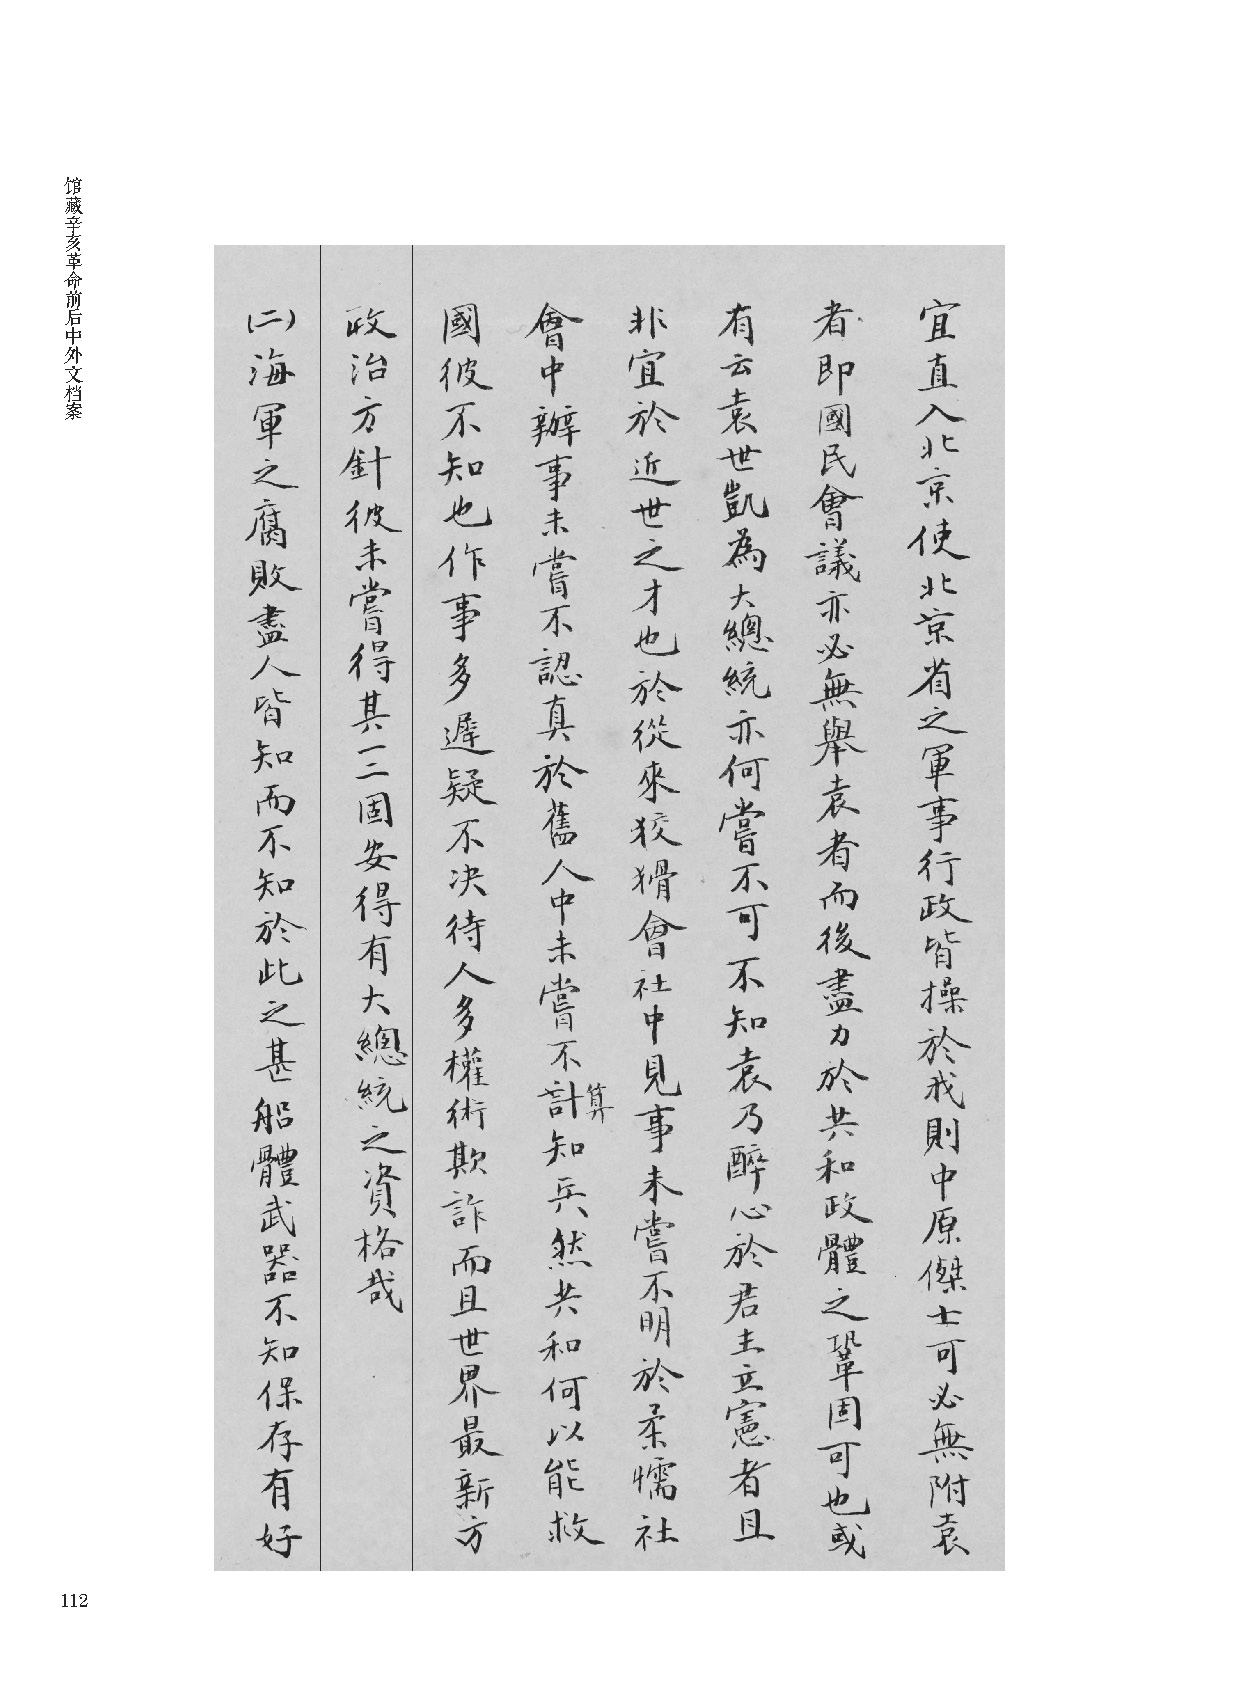 馆藏辛亥革命前后中外文档案
宜直入北京使北京省之軍事行政皆操於我則中原傑士可必無附袁
者即國民會議亦必無舉袁者而後盡力於共和政體之鞏固可也或
有云袁世凱為大總統亦何嘗不可不知袁乃醉心於君主立憲者且
非宜於近世之才也於從來狡猾會社中見事未嘗不明於柔懦社
會中辦事未嘗不認真於舊人中未嘗不計算知兵然共和何以能救
國彼不知也作事多遲疑不决待人多權術欺詐而且世界最新方
政治方針彼未嘗得其一二固安得有大總統之資格哉
(二)海軍之腐敗盡人皆知而不知於此之甚船體武器不知保存有好
112